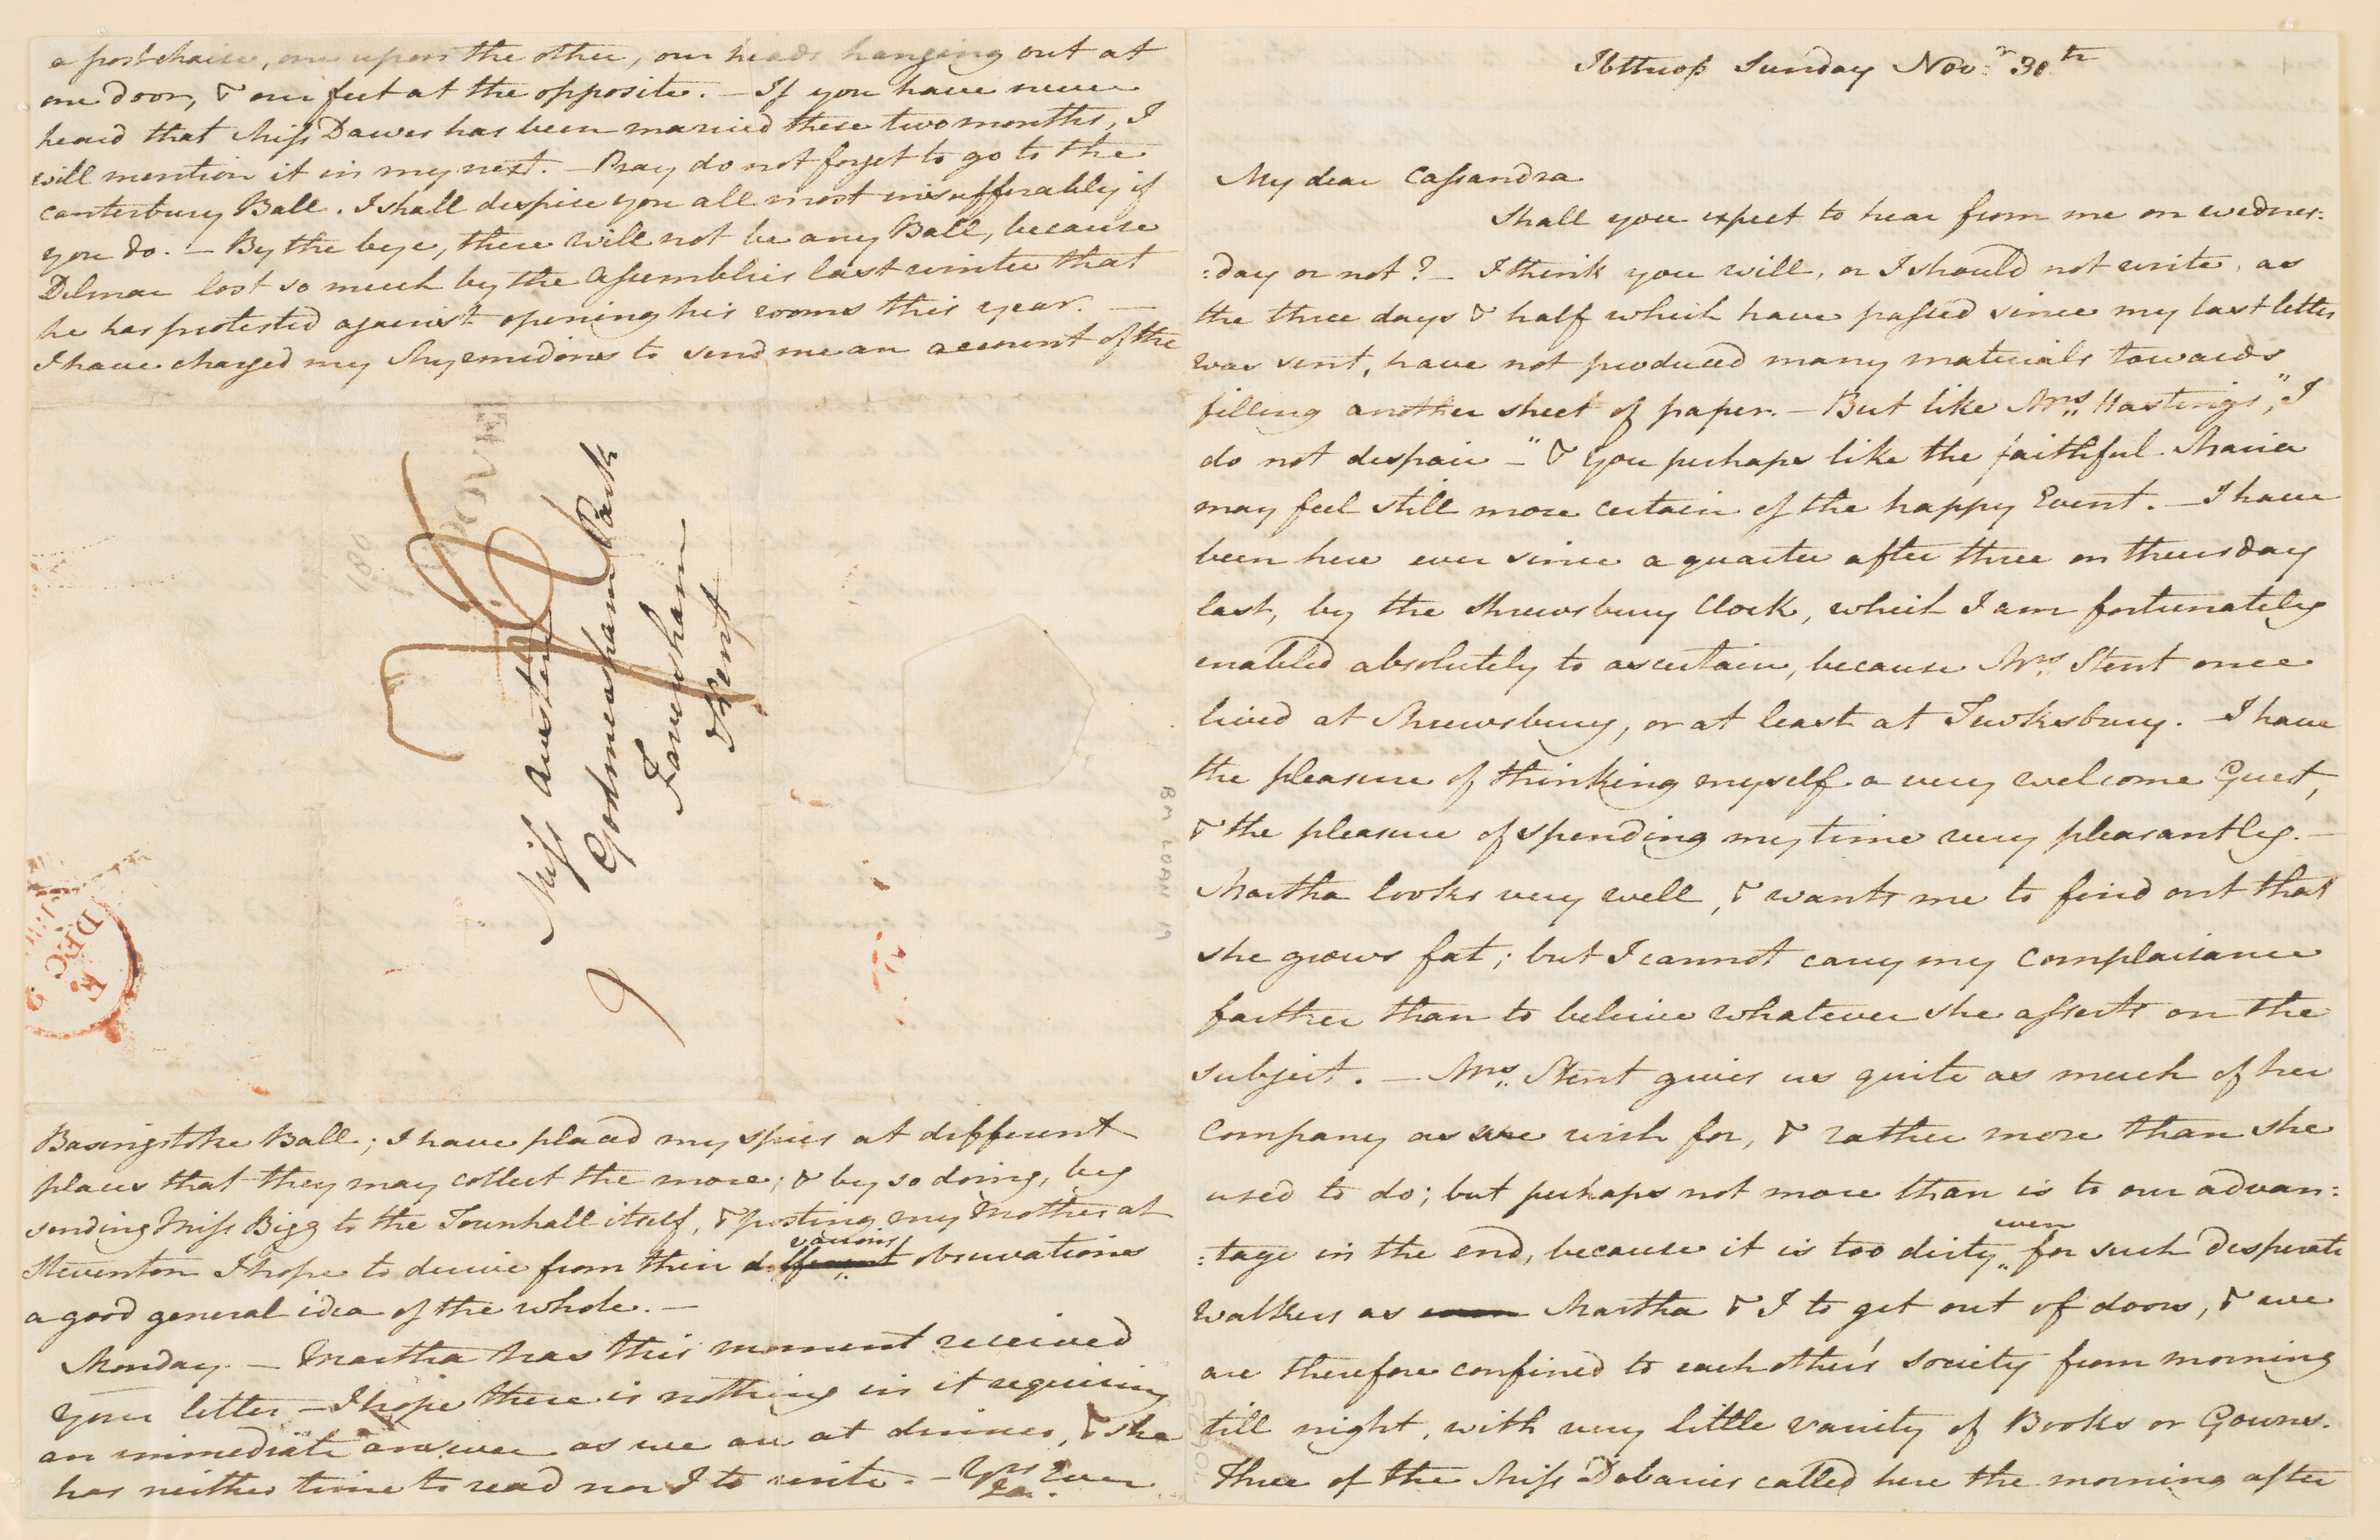 Ibthrop Sunday Nov:r 30th
My dear Cassandra
Shall you expect to hear from me on Wednes:
:day or not? – I think you will, or I should not write, as
the three days & half which have passed since my last letter
was sent, have not produced many materials towards
filling another sheet of paper. – But like Mrs. Hastings, "I
do not despair –" & you perhaps like the faithful Maria
may feel still more certain of the happy Event. – I have
been here ever since a quarter after three on thursday
last, by the Shrewsbury Clock, which I am fortunately
enabled absolutely to ascertain, because Mrs. Stent once
lived at Shrewsbury, or at least at Tewksbury. – I have
the pleasure of thinking myself a very welcome Guest,
& the pleasure of spending my time very pleasantly. –
Martha looks very well, & wants me to find out that
she grows fat; but I cannot carry my complaisance
farther than to beleive whatever she asserts on the
subject. – Mrs. Stent gives us quite as much of her
Company as we wish for, & rather more than she
used to do; but perhaps not more than is to our advan:
:tage in the end, because it is too dirty even for such desperate
Walkers as even Martha & I to get out of doors, & we
are therefore confined to each other's society from morning
till night, with very little variety of Books or Gowns.
Three of the Miss Debaries called here the morning after
a postchaise, one upon the other, our heads hanging out at
one door, & our feet at the opposite. – If you have never
heard that Miss Dawes has been married these two months, I
will mention it in my next. – Pray do not forget to go to the
Canterbury Ball. I shall despise you all most insufferably if
you do. – By the bye, there will not be any Ball, because
Delmar lost so much by the Assemblies last winter that
he has protested against opening his rooms this year. –
I have charged my Myrmidons to send me an account of the
Miss Austen
Godmersham Park
Faversham
Kent
Basingstoke Ball; I have placed my spies at different
places that they may collect the more; & by so doing, by
sending Miss Bigg to the Townhall itself, & posting my Mother at
Steventon I hope to derive from their different various observations
a good general idea of the whole. –
Monday. – Martha has this moment received
your letter – I hope there is nothing in it requiring
an immediate answer as we are at dinner, & she
has neither time to read nor I to write. – Yrs Ever
JA.
BM LOAN 19
DEC